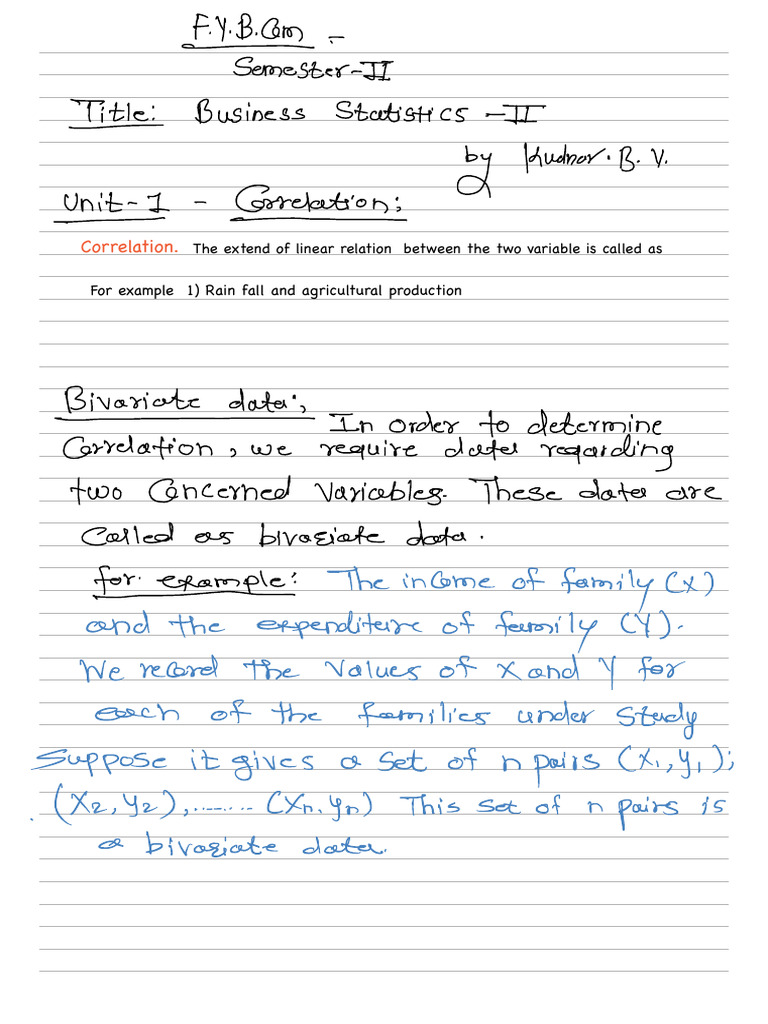 F.Y.B.Com -
Semester-II
Title: Business Statistics -II
by Kudnar. B. V.
Unit-1 - Correlation:
Correlation. The extend of linear relation between the two variable is called as
For example 1) Rain fall and agricultural production
Bivariate data:, In order to determine
Correlation, we require data regarding
two Concerned Variables. These data are
Called as bivariate data.
for. example: The income of family (X)
and the expenditure of family (Y).
We record the Values of X and Y for
each of the families under study
Suppose it gives a set of n pairs (X1, y1);
(X2, y2), ........ (Xn, yn) This set of n pairs is
a bivariate data.